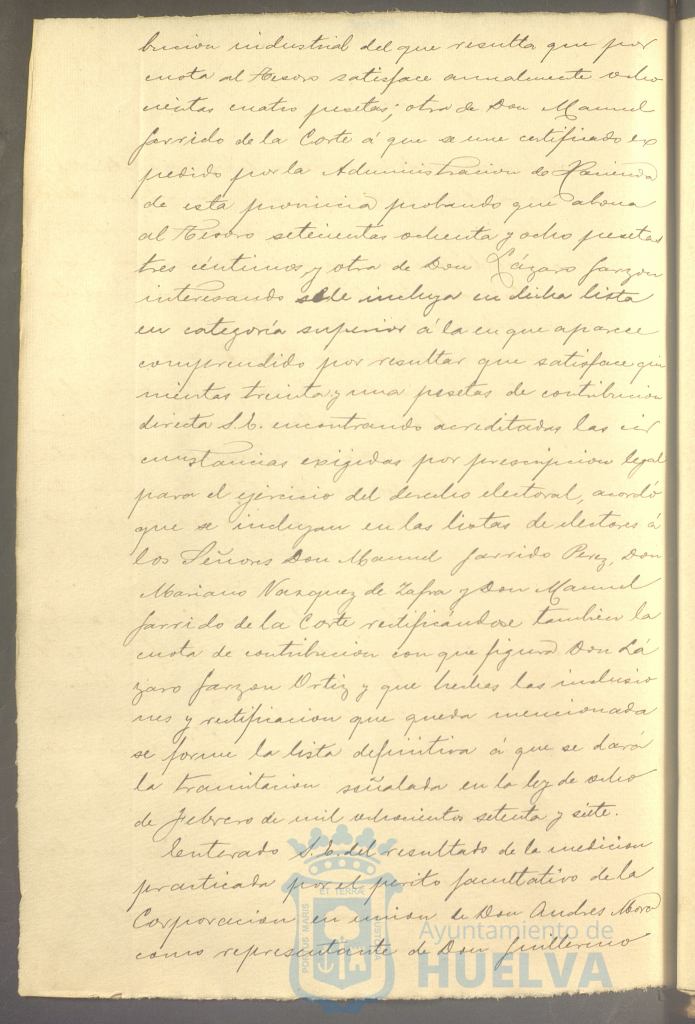 bucion industrial del que resulta que por
cuota al Tesoro satisface anualmente ocho
cientas cuatro pesetas; otra de Don Manuel
Garrido de la Corte á que se une certificado ex
pedido por la Administracion de Hacienda
de esta provincia probando que abona
al Tesoro setecientas ochenta y ocho pesetas
tres céntimos, y otra de Don Lázaro Garzon
interesando se le incluya en dicha lista
en categoría superior á la en que aparece
comprendido por resultar que satisface qui
nientas treinta y una pesetas de contribucion
directa S.E. encontrando acreditadas las cir
cunstancias exigidas por prescripcion legal
para el ejercicio del derecho electoral, acordó
que se incluyan en las listas de electores á
los Señores Don Manuel Garrido Perez, Don
Mariano Vazquez de Zafra y Don Manuel
Garrido de la Corte rectificándose tambien la
cuota de contribucion con que figura Don Lá
zaro Garzon Ortiz y que hechas las inclusio
nes y rectificacion que queda mencionada
se forme la lista definitiva á que se dará
la tramitacion señalada en la ley de ocho
de Febrero de mil ochocientos setenta y siete.
Enterado S.E. del resultado de la medicion
practicada por el perito facultativo de la
Corporacion en union de Don Andres Mora
como representante de Don Guillermo
PORTUS MARIS
ET TERRÆ
Ayuntamiento de
HUELVA